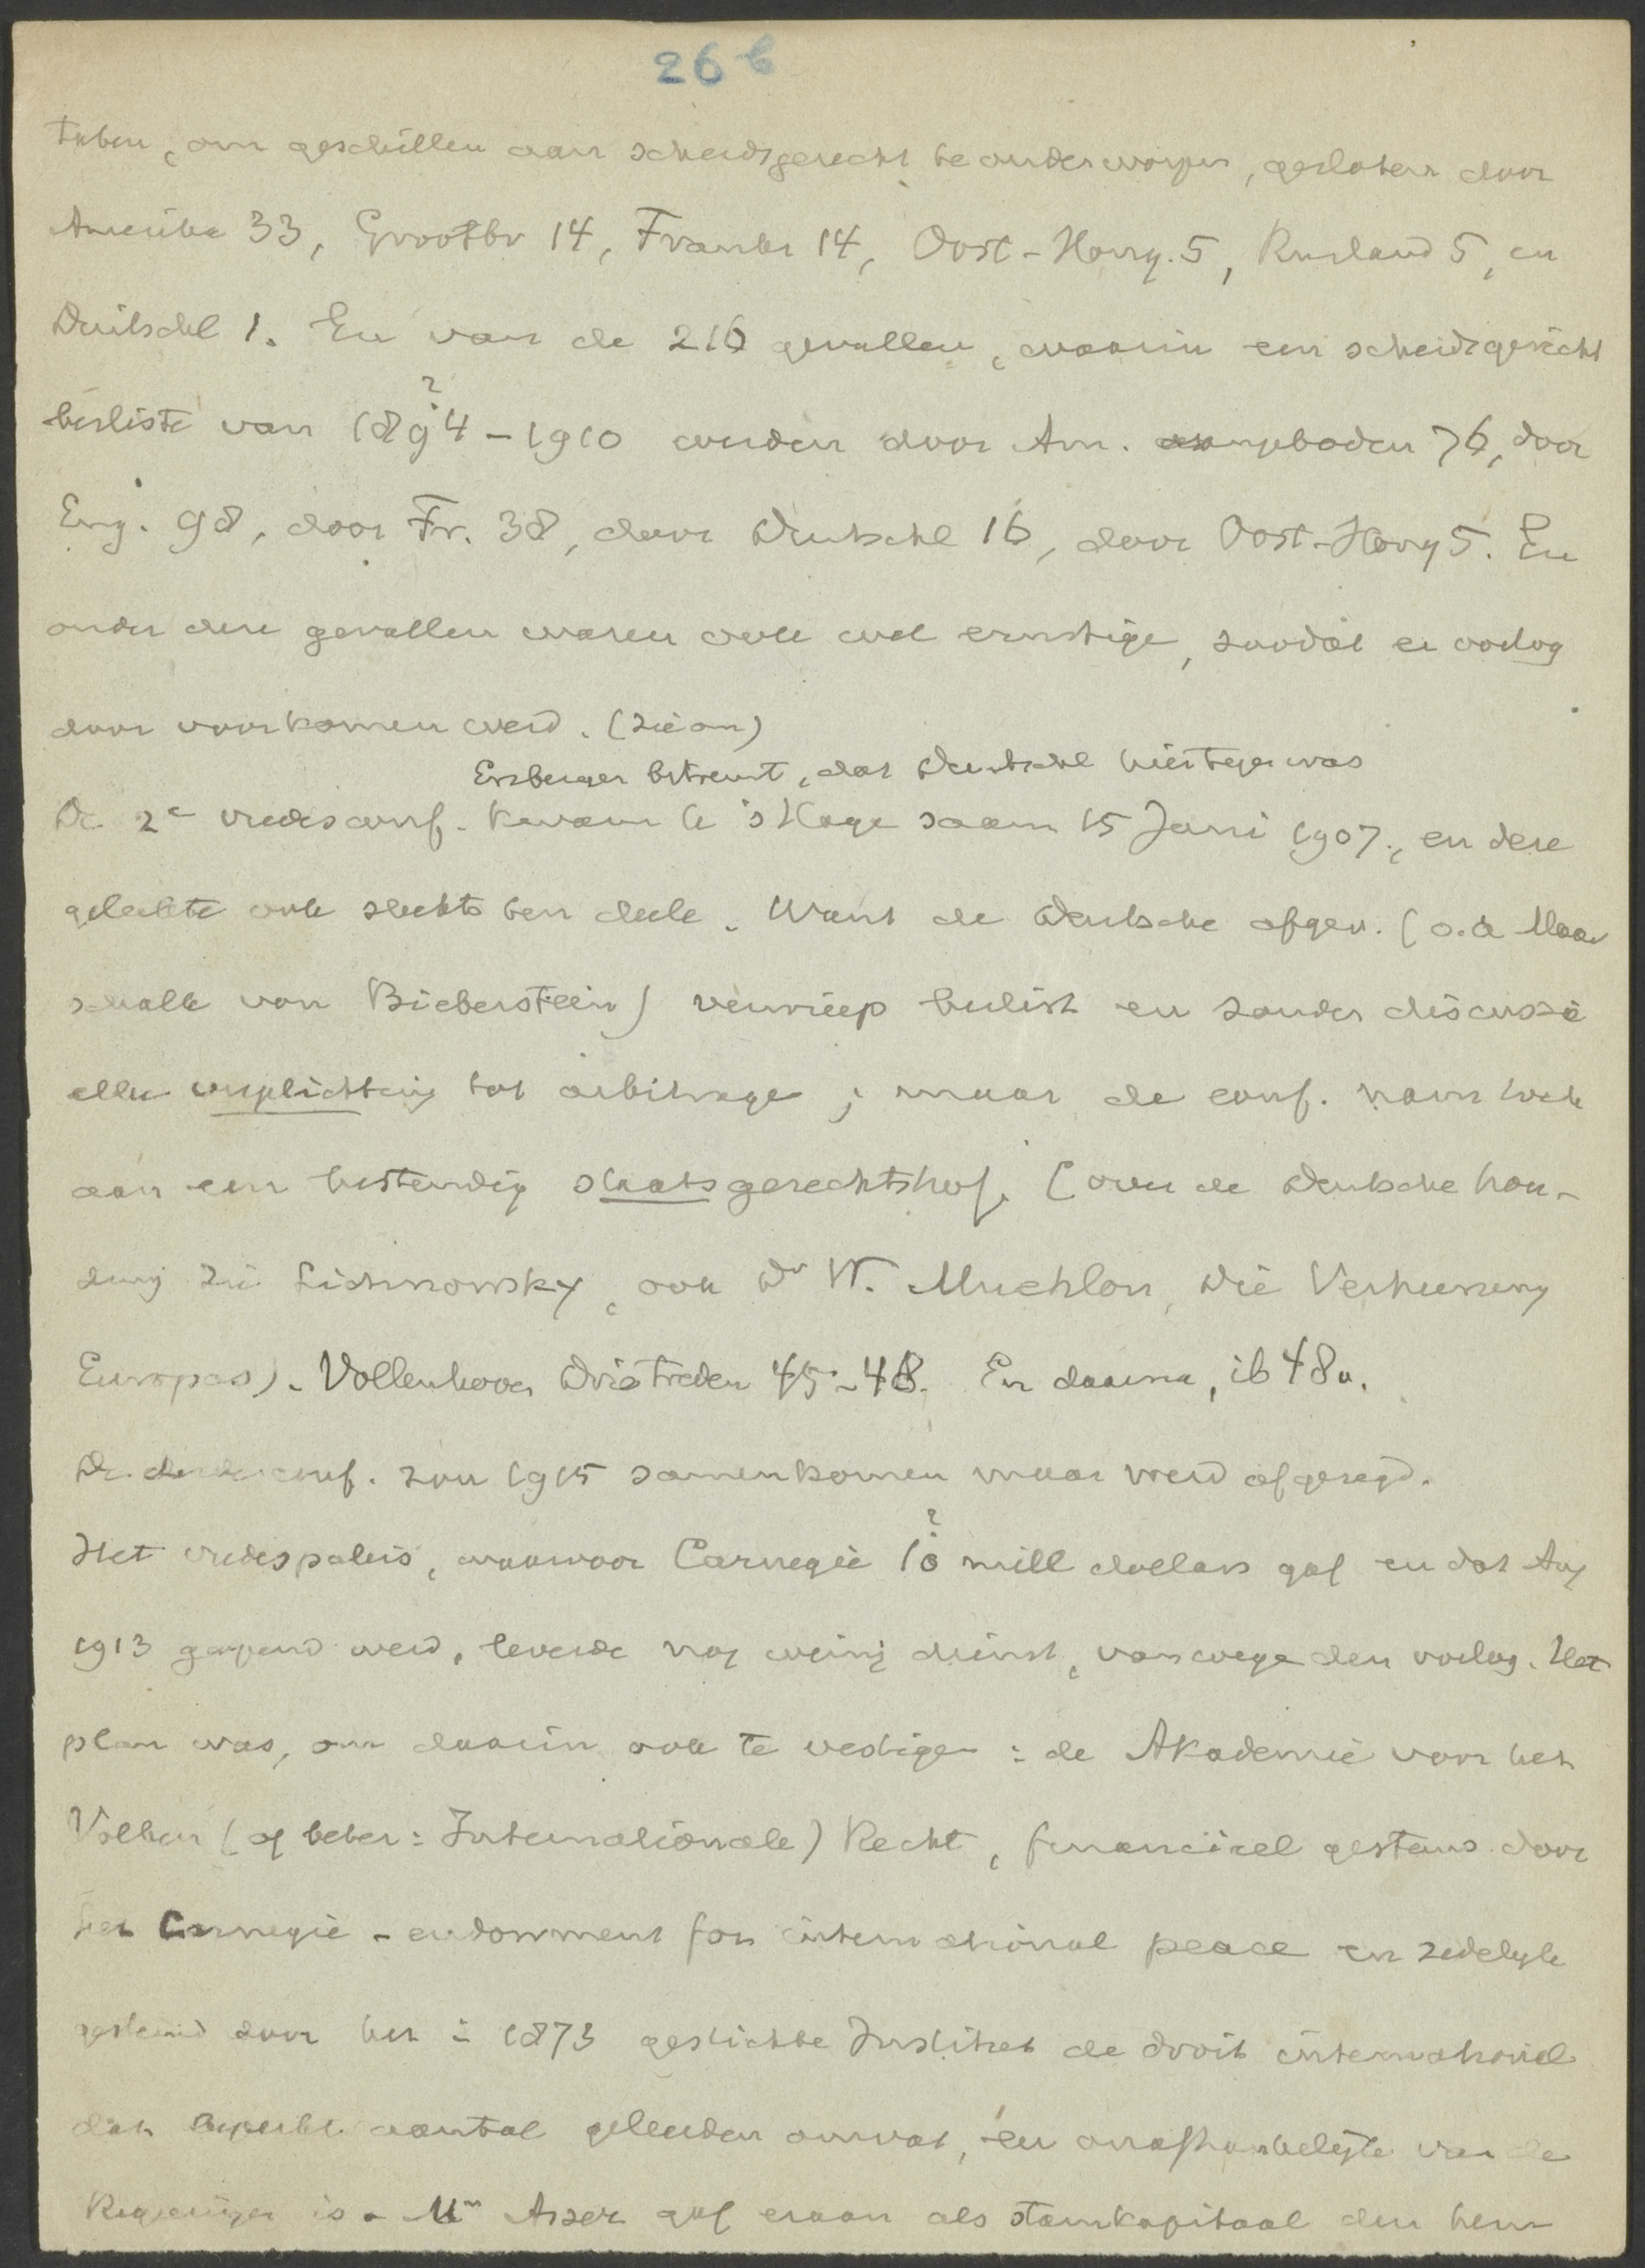 26 b
taten, om geschillen aan scheidsgerecht te onderworpen, gesloten door
Amerika 33, Grootbr 14, Frankr 14, Oost-Hong. 5, Rusland 5, en
Duitschl 1. En van de 216 gevallen, waarin een scheidsgericht
besliste van 1894 - 1910 werden door Am. aangeboden 76, door
?
Eng. 98, door Fr. 38, door Duitschl 16, door Oost-Hong 5. En
onder deze gevallen waren ook wel ernstige, zoodat er oorlog
door voorkomen werd. (zie om)
Erzberger betreurt, dat Duitschl hiertegen was
De 2e vredesconf. kwam te 's Hage saam 15 Juni 1907, en deze
gelukte ook slechts ten deele. Want de Duitsche afgev. (o.a Maar
schalk von Bieberstein) verwierp beslist en zonder discussie
elke verplichting tot arbitrage; maar de conf. nam toch
aan een bestendig staatsgerechtshof. (over de Duitsche hou-
ding zie Lichnowsky, ook Dr W. Muehlon, Die Verheerung
Europas). Vollenhoven Drie treden 45-48. En daarna, ib 48v.
De derde conf. zou 1915 samenkomen maar werd afgezegd.
?
Het vredespaleis, waarvoor Carnegie 10 mill dollars gaf en dat Aug
1913 geopend werd, leverde nog weinig dienst, vanwege den oorlog. Het
plan was, om daarin ook te vestigen: de Akademie voor het
Volken (of beter: Internationale) Recht, financieel gesteund door
het Carnegie-endowment for international peace en zedelijk
gesteund door het in 1873 gestichte Institut de droit international
dat beperkt aantal geleerden omvat, en onafhankelijk van de
Regeeringen is. Mr Asser gaf eraan als stamkapitaal den hem